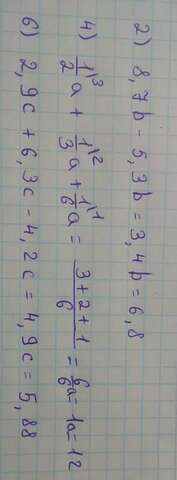 2) 8,7b - 5,3b = 3,4b = 6,8
4) 1/2\3 a + 1/3\2 a + 1/6\1 a = (3+2+1)/6 = 6/6 a = 1a = 12
6) 2,9c + 6,3c - 4,2c = 4,9c = 5,88